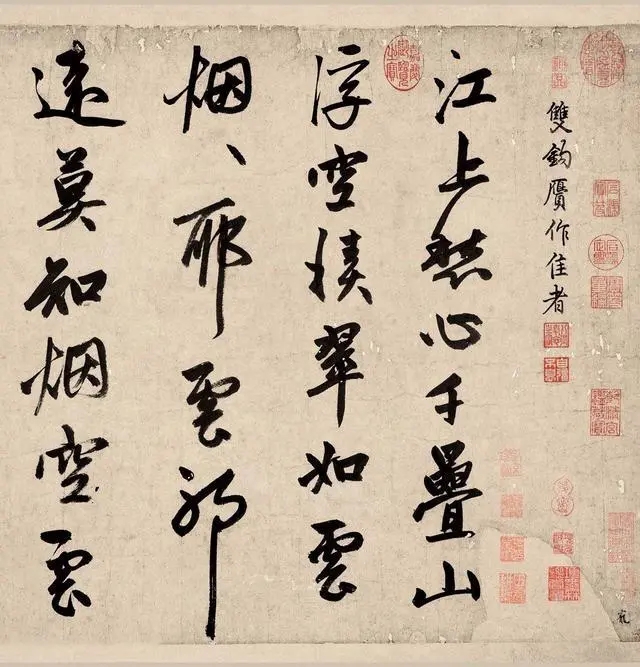 雙鈎贋作佳者
江上愁心千疊山
浮空積翠如雲
烟、耶雲耶
遠莫知烟空雲